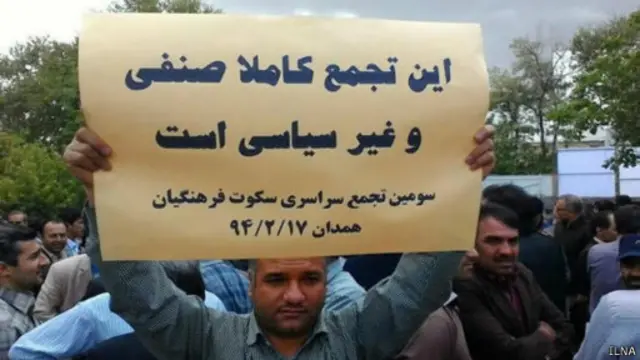 این تجمع کاملا صنفی
و غیر سیاسی است
سومین تجمع سراسری سکوت فرهنگیان
همدان ۹۴/۲/۱۷
ILNA